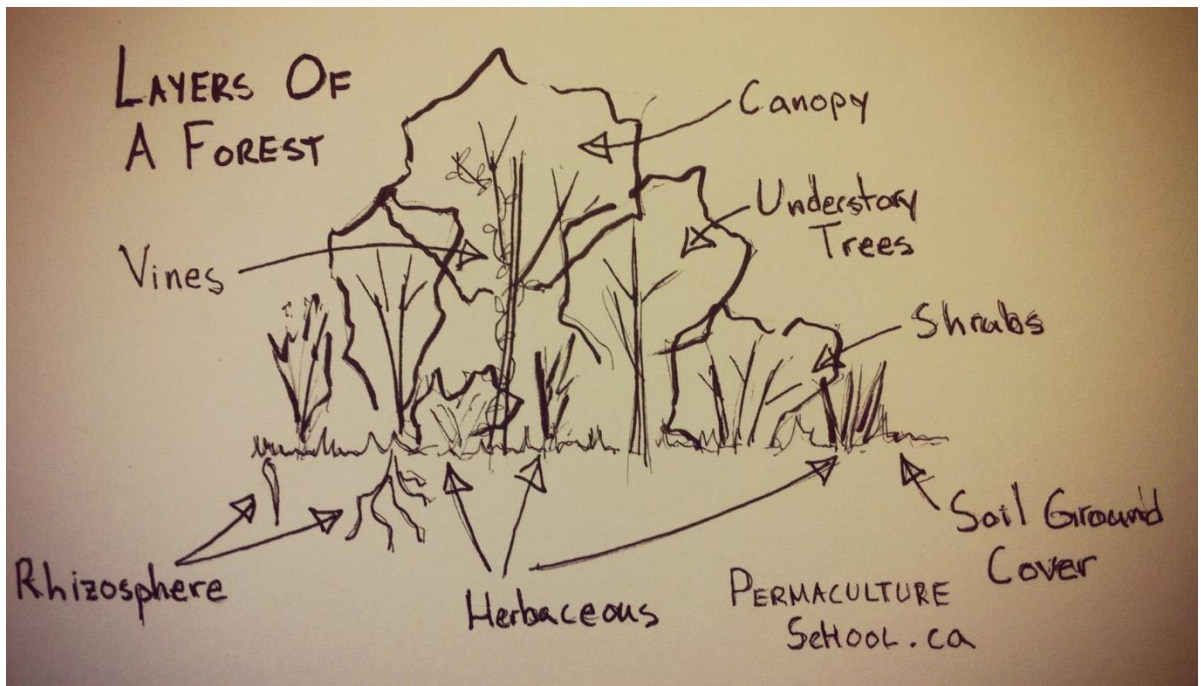 LAYERS OF
A FOREST
Canopy
Understory
Trees
Vines
Shrubs
Soil Ground
Cover
Rhizosphere
Herbaceous
PERMACULTURE
SCHOOL.ca